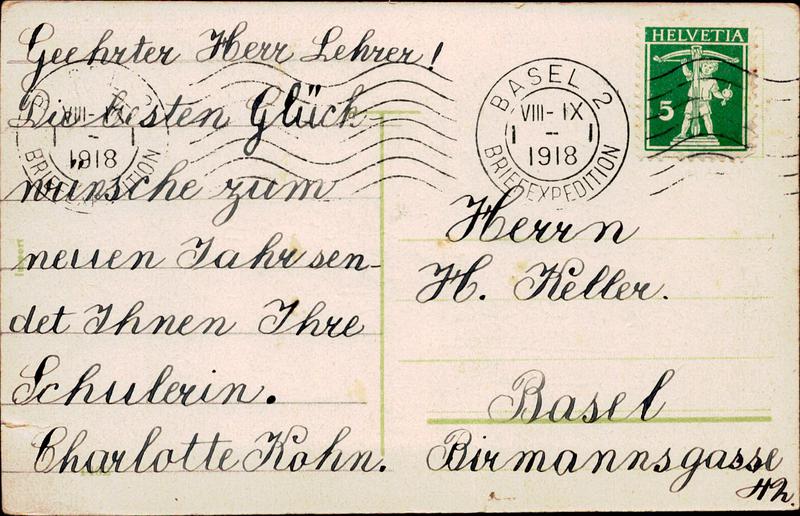 Geehrter Herr Lehrer!
Die besten Glück-
wünsche zum
neuen Jahr sen-
det Ihnen Ihre
Schülerin.
Charlotte Kohn.
BASEL 2
VIII-IX
1 - 1
1918
BRIEFEXPEDITION
VIII-IX
1918
HELVETIA
5
Herrn
H. Keller.
Basel
Birmannsgasse